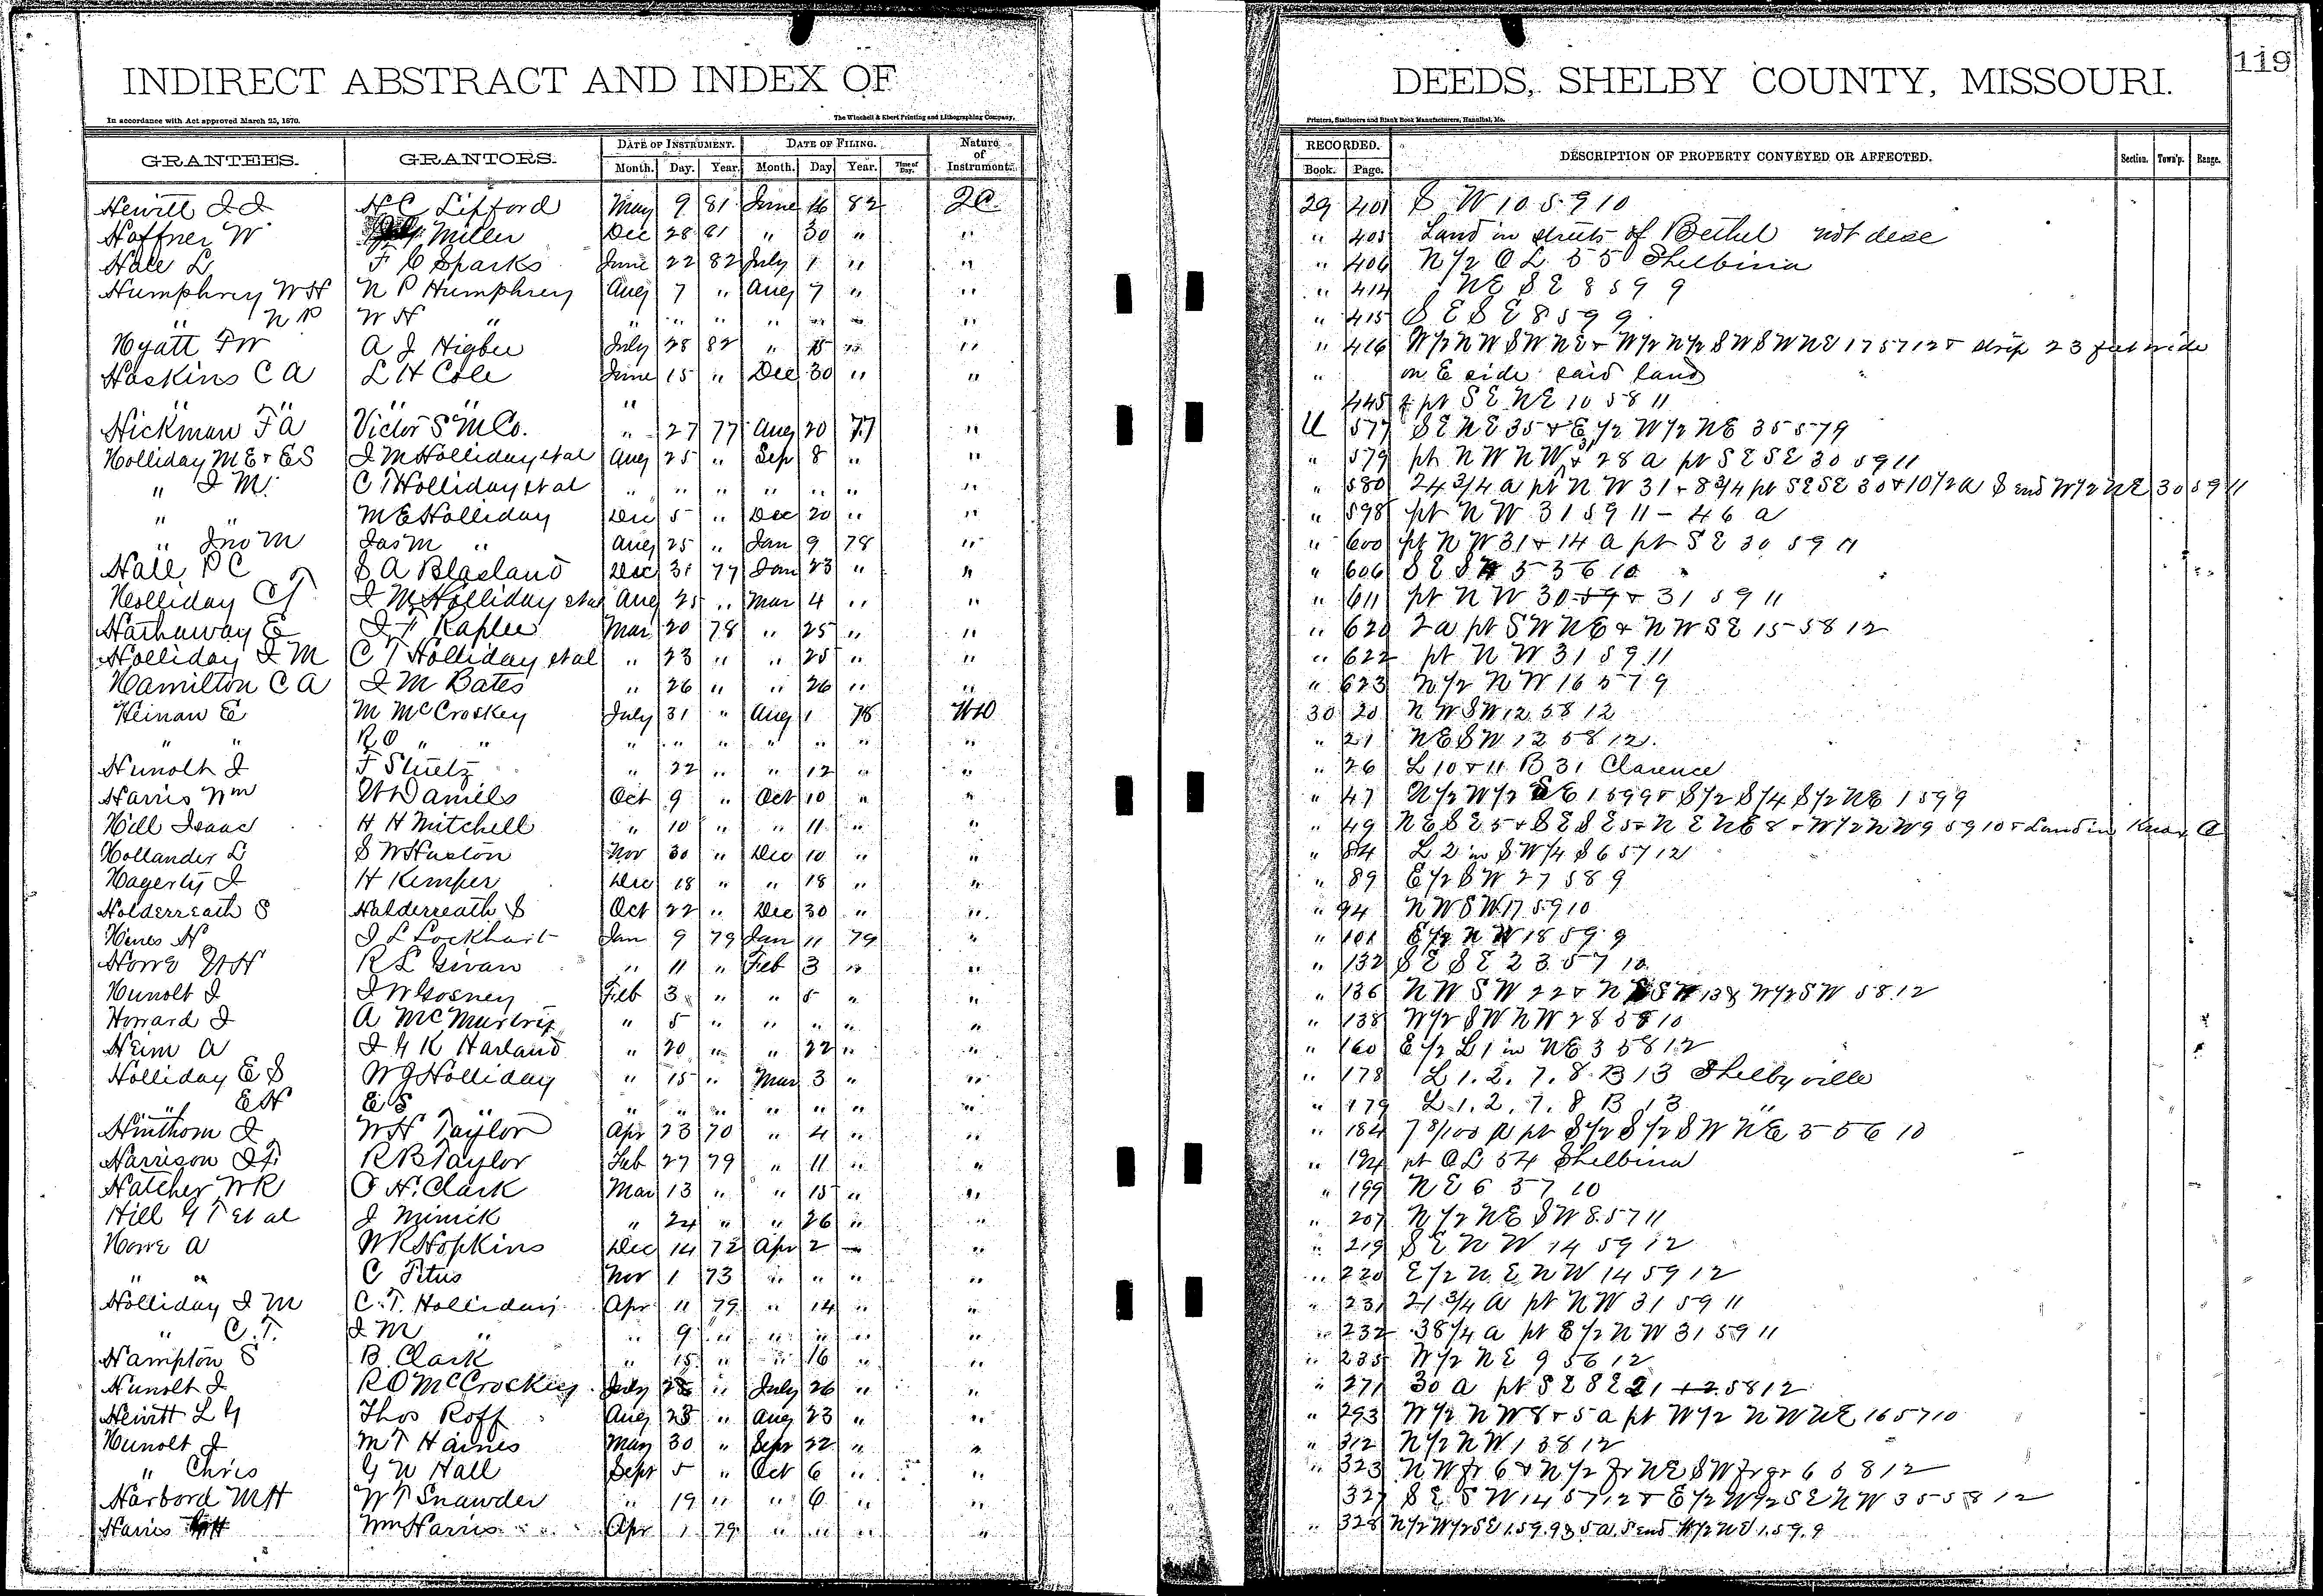 INDIRECT ABSTRACT AND INDEX OF DEEDS, SHELBY COUNTY, MISSOURI. 119
In accordance with Act approved March 25, 1870. The Winchell & Ebert Printing and Lithographing Company, Printers, Stationers and Blank Book Manufacturers, Hannibal, Mo.
GRANTEES. GRANTORS. DATE OF INSTRUMENT. DATE OF FILING. Nature of Instrument. RECORDED. DESCRIPTION OF PROPERTY CONVEYED OR AFFECTED. Section. Town'p. Range.
Month. Day. Year. Month. Day. Year. Time of Day. Book. Page.
Hewitt J J H C Lifford May 9 81 June 16 82 29 401 S W 10 59 10
Haffner W Miller Dec 28 81 " 30 " " " 405 Land in streets of Bethel not desc
Hale L F C Sparks June 22 82 July 1 " " " 406 N 1/2 O L 55 Shelbina
Humphrey W H N P Humphrey Aug 7 " Aug 7 " " " 414 NE SE 8 59 9
" N P W H " " " " " " " " " " 415 S E S E 8 59 9
Hyatt F W A J Higbee July 28 82 " 15 " " " 416 W 1/2 N W S W N E + W 1/2 N 1/2 S W S W N E 17 57 12 + strip 23 feet wide
Haskins C A L H Cole June 15 " Dec 30 " " " on E side said land
" " " " " 445 pt S E N E 10 58 11
Hickman F A Victor S M Co. " 27 77 Aug 20 77 " U 577 S E N E 35 + E 1/2 W 1/2 N E 35 57 9
Holliday M E + E S J M Holliday et al Aug 25 " Sep 8 " " " 579 pt N W N W + 28 a pt S E S E 30 59 11
" J M C T Holliday et al " " " " " " " " 580 24 3/4 a pt N W 31 + 8 3/4 pt S E S E 30 + 10 1/2 a S end W 1/2 N E 30 59 11
" " M E Holliday Dec 5 " Dec 20 " " " 598 pt N W 31 59 11 - 46 a
" Jno M Jas M " Aug 25 " Jan 9 78 " " 600 pt N W 31 + 14 a pt S E 30 59 11
Hall P C S A Blasland Dec 31 77 Jan 23 " " " 606
Holliday C T J M Holliday et al Aug 25 " Mar 4 " " " 611 pt N W 30 59 + 31 59 11
Hathaway E J F Raplee Mar 20 78 " 25 " " " 620 2 a pt S W N E + N W S E 15 58 12
Holliday J M C T Holliday et al " 23 " " 25 " " " 622 pt N W 31 59 11
Hamilton C A J M Bates " 26 " " 26 " " " 623 N 1/2 N W 16 57 9
Heinan E M McCroskey July 31 " Aug 1 78 WD 30 20 N W S W 12 58 12
" " R O " " " " " " " " " " " 21 N E S W 12 58 12
Hunolt J F Stuetz " 22 " " 12 " " " 26 L 10 + 11 B 31 Clarence
Harris Wm W Daniels Oct 9 " Oct 10 " " " 47 N 1/2 W 1/2 S E 1 59 9 + S 1/2 S 1/4 S 1/2 N E 1 59 9
Hill Isaac H H Mitchell " 10 " " 11 " " " 49 N E S E 5 + S E S E 5 + N E N E 8 + W 1/2 N W 9 59 10 + Land in Knox C
Hollander L S W Huston Nov 30 " Dec 10 " " " 84 L 2 in S W 1/4 S 6 57 12
Hagerty J H Kemper Dec 18 " " 18 " " " 89 E 1/2 S W 27 58 9
Holderreath S Halderreath S Oct 22 " Dec 30 " " " 94 N W S W 17 59 10
Hines H J L Lockhart Jan 9 79 Jan 11 79 " " 101 E 1/2 N W 18 59 9
Howe W H R L Givan " 11 " Feb 3 " " " 132 S E S E 23 57 10
Hunolt J J W Gosney Feb 3 " " 5 " " " 136 N W S W 22 + 13 & W 1/2 S W 58 12
Howard J A McMurtrey " 5 " " " " " " 138 W 1/2 S W N W 28 58 10
Heim A J G K Harland " 20 " " 22 " " " 160 E 1/2 L 1 in N E 3 58 12
Holliday E S W J Holliday " 15 " Mar 3 " " " 178 L 1. 2. 7. 8. B 13 Shelbyville
" E H E S " " " " " " " " 179 L 1. 2. 7. 8 B 13 "
Hinthorn J W H Taylor Apr 23 70 " 4 " " " 184 7 8/100 a pt S 1/2 S 1/2 S W N E 5 56 10
Harrison J F R B Taylor Feb 27 79 " 11 " " " 194 pt O L 54 Shelbina
Hatcher W R O H. Clark Mar 13 " " 15 " " " 199 N E 6 57 10
Hill G T et al J Minick " 24 " " 26 " " " 207 N 1/2 N E S W 8 57 11
Howe A W R Hopkins Dec 14 72 Apr 2 " " " 219 S E N W 14 59 12
" " C Titus Nov 1 73 " " " " " 220 E 1/2 N E N W 14 59 12
Holliday J M C. T. Holliday Apr 11 79 " 14 " " " 231 21 3/4 a pt N W 31 59 11
" C. T. J M " " 9 " " " " " " 232 38 1/4 a pt E 1/2 N W 31 59 11
Hampton S B. Clark " 15 " " 16 " " " 235 W 1/2 N E 9 56 12
Hunolt J R O McCroskey July 25 " July 26 " " " 271 30 a pt S E S E 21 58 12
Hewitt L G Thos Roff Aug 23 " Aug 23 " " " 293 W 1/2 N W 8 + 5 a pt W 1/2 N W N E 16 57 10
Hunolt J M T Haines May 30 " Sepr 22 " " " 312 N 1/2 N W 1 58 12
" Chris G W Hall Sepr 5 " Oct 6 " " " 323 N W fr 6 + N 1/2 fr N E S W fr qr 6 58 12
Harbord M H W T Snawder " 19 " " 6 " " 327 S E S W 14 57 12 + E 1/2 W 1/2 S E N W 35 58 12
Harris Wm Harris Apr 1 79 " " " " " 328 N 1/2 W 1/2 S E 1. 59. 9 35 a. S end W 1/2 N E 1. 59. 9